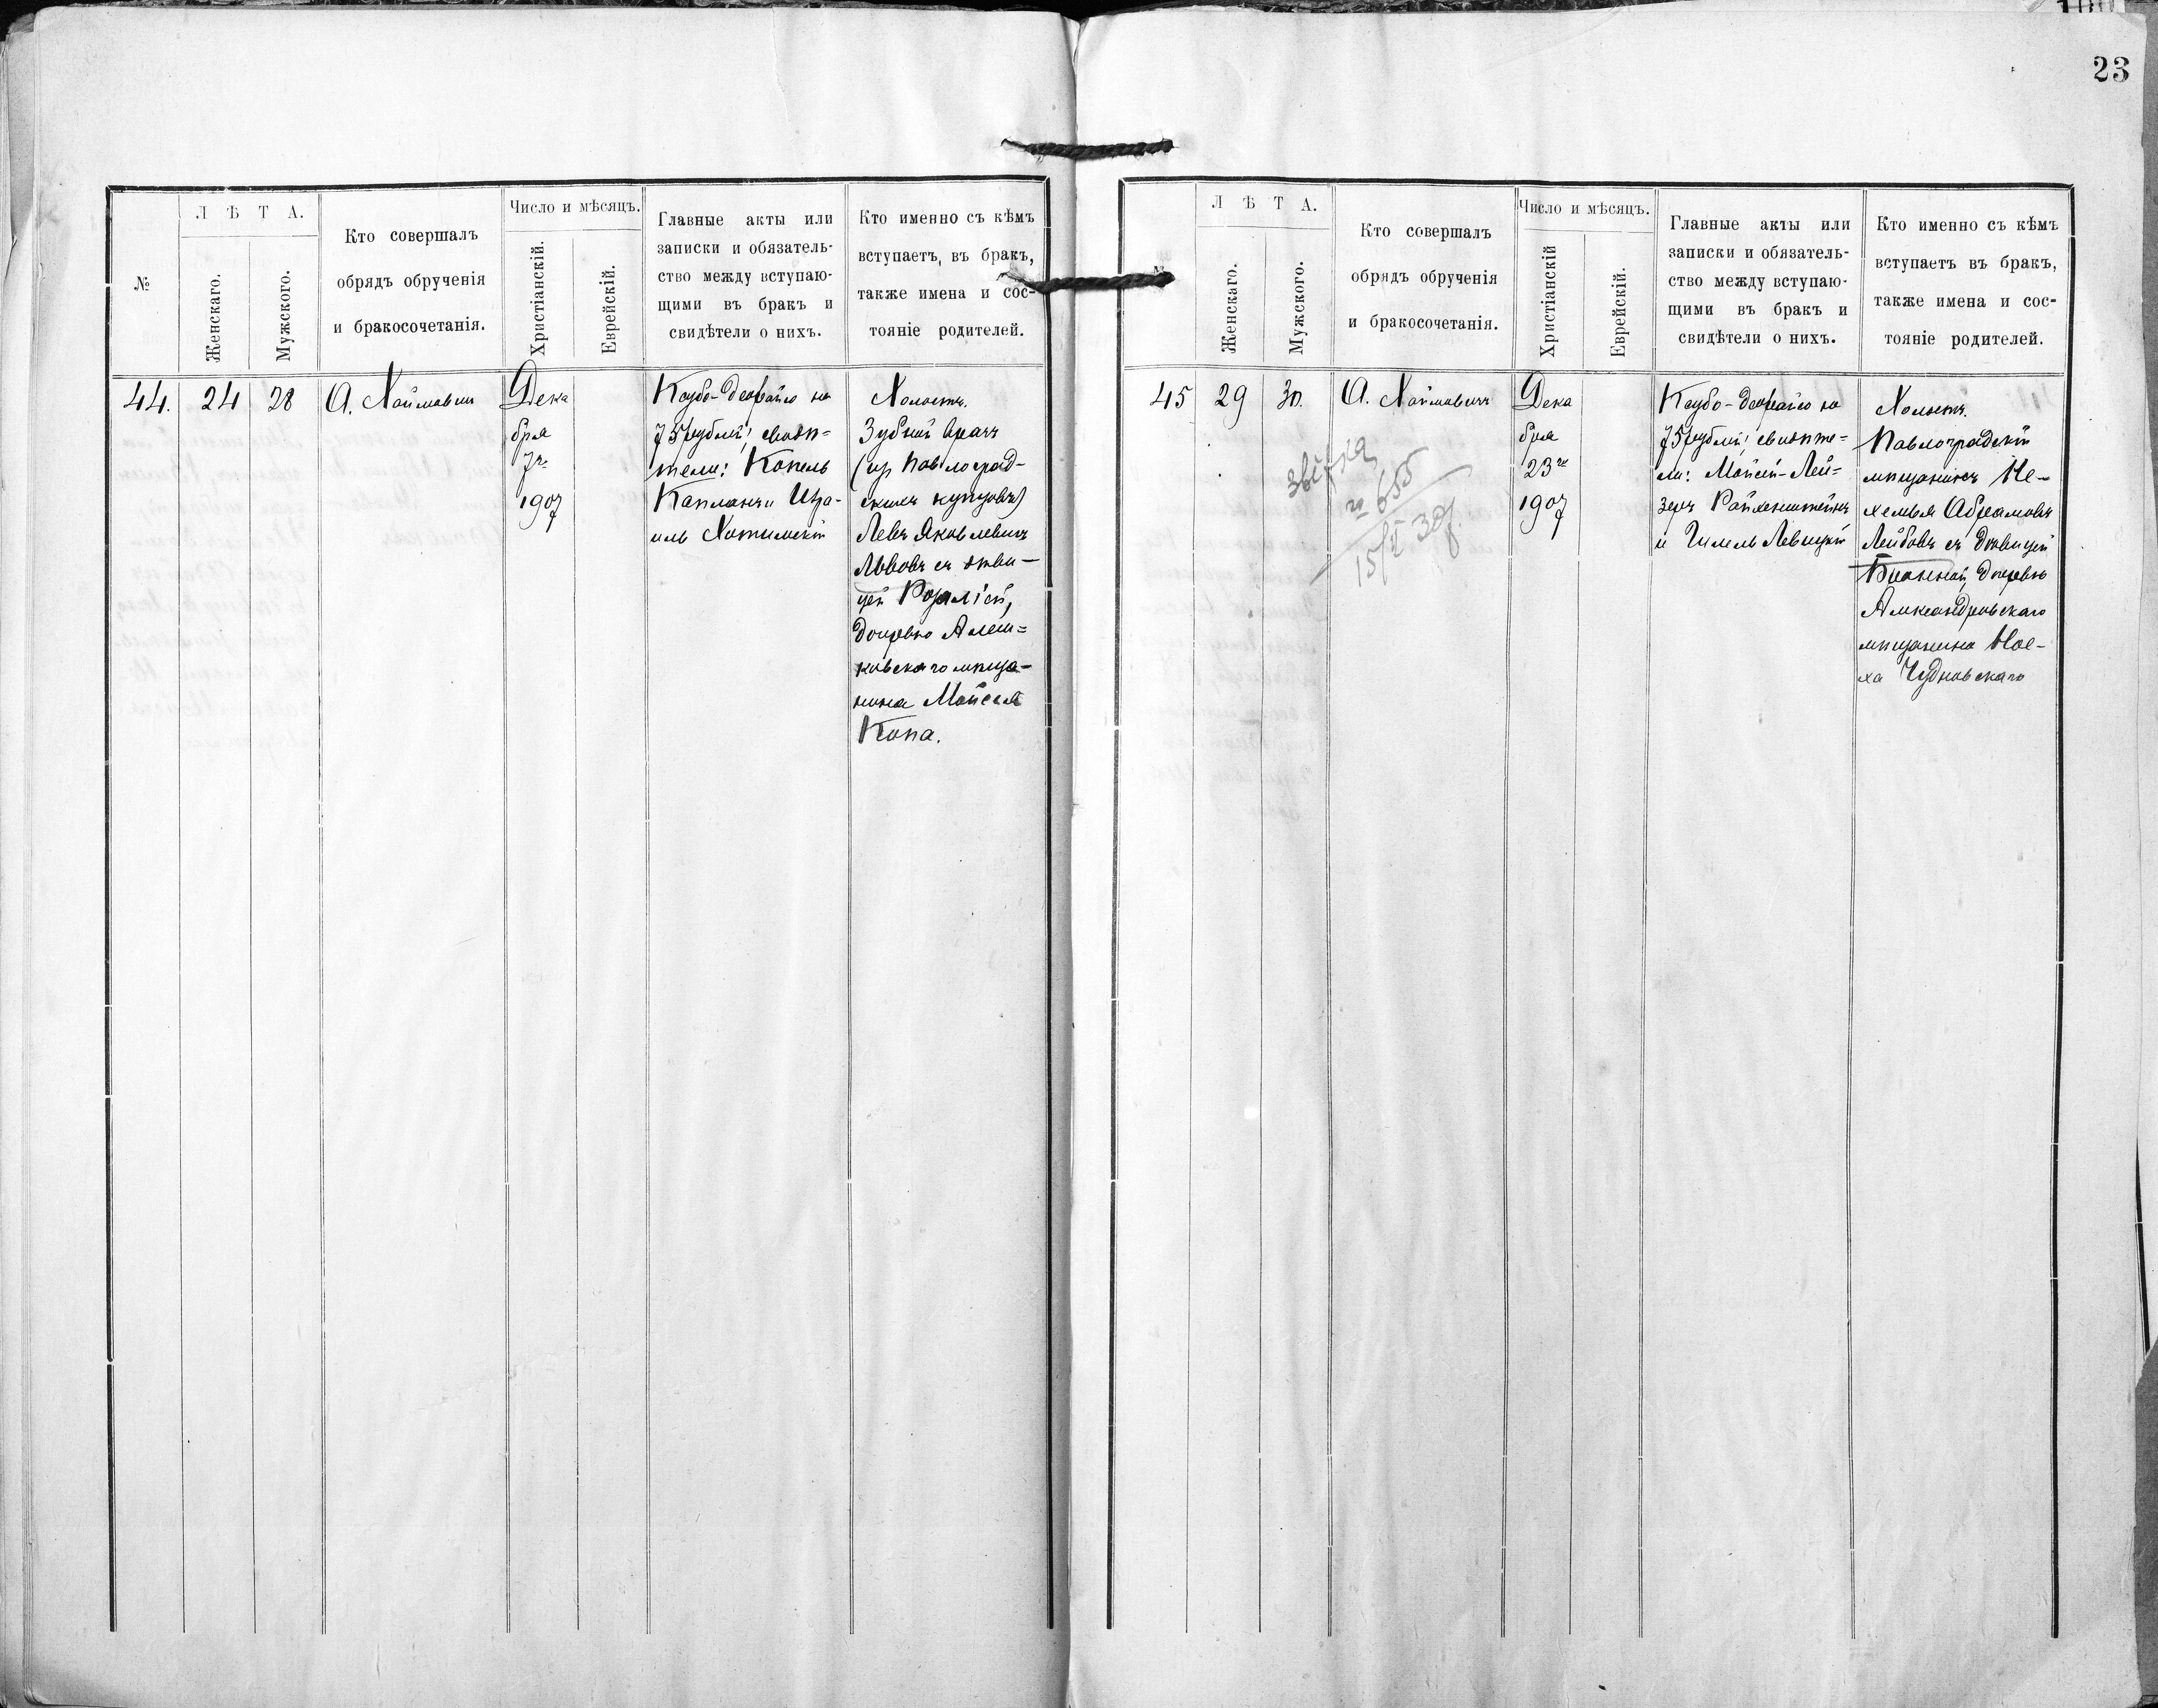 23
№
Л Ѣ Т А.
Женскаго.
Мужского.
Кто совершалъ
обрядъ обрученія
и бракосочетанія.
Число и мѣсяцъ.
Христіанскій.
Еврейскій.
Главные акты или
записки и обязатель-
ство между вступаю-
щими въ бракъ и
свидѣтели о нихъ.
Кто именно съ кѣмъ
вступаетъ, въ бракъ,
также имена и сос-
тояніе родителей.
44.
24
28
А. Хаймович
Дека
бря
7го
1907
Кцубо-Деорайсо на
75 рублей; свидѣ=
тели: Копель
Капланъ и Изра-
иль Хотимскій
Холостъ.
Зубной врачъ
(изъ Павлоград-
скихъ купцовъ)
Левъ Яковлевичъ
Львовъ съ дѣви-
цей Розаліей,
дочерью Алеш=
ковскаго мѣща-
нина Мойсея
Копа.
Л Ѣ Т А.
Женскаго.
Мужского.
Кто совершалъ
обрядъ обрученія
и бракосочетанія.
Число и мѣсяцъ.
Христіанскій
Еврейскій.
Главные акты или
записки и обязатель-
ство между вступаю-
щими въ бракъ и
свидѣтели о нихъ.
Кто именно съ кѣмъ
вступаетъ въ бракъ,
также имена и сос-
тояніе родителей.
45
29
30.
А. Хаймовичъ
655
15/II 30г.
Дека
бря
23го
1907
Кцубо-Деорайсо на
75 рублей; свидѣте=
ли: Мойсей-Лей=
зеръ Райхенштейнъ
и Шмель Левицкій
Холостъ.
Павлоградскій
мѣщанинъ Не-
хемья Абрамовъ
Лейбовъ съ дѣвицей
Бианной, дочерью
Александровскаго
мѣщанина Ное-
ха Чудновскаго